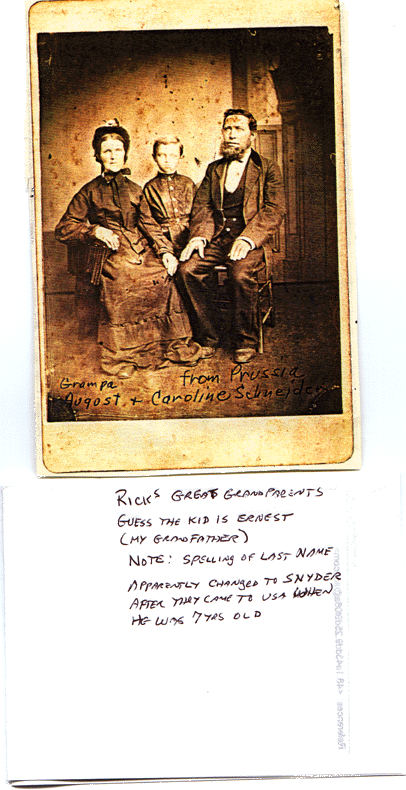 Grampa from Prussia
August + Caroline Schneider
RICKS GREAT GRANDPARENTS
GUESS THE KID IS ERNEST
(MY GRANDFATHER)
NOTE: SPELLING OF LAST NAME
APPARENTLY CHANGED TO SNYDER
AFTER THEY CAME TO USA WHEN
HE WAS 7YRS OLD
References